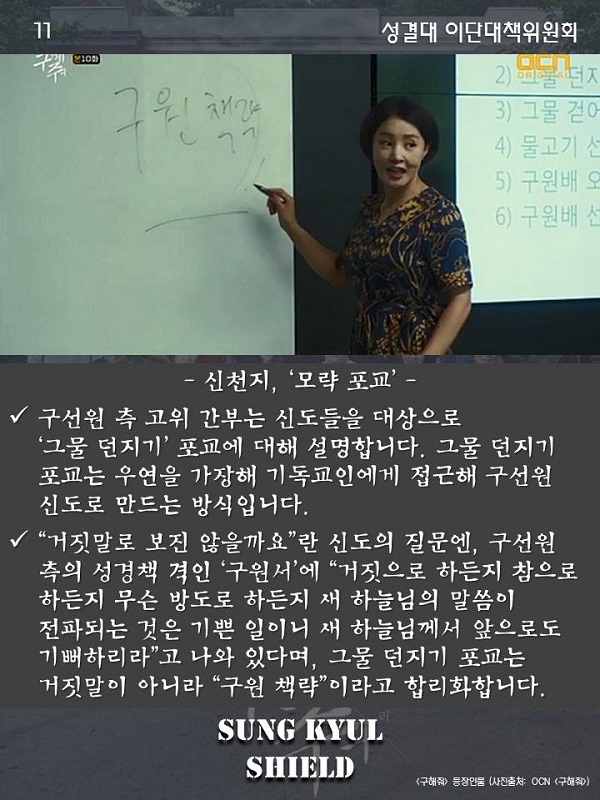 11
성결대 이단대책위원회
구해줘
본10화
OCN
ORIGINAL
구원 책략
2) 그물 던지
3) 그물 걷어
4) 물고기 선
5) 구원배 오
6) 구원배 선
- 신천지, ‘모략 포교’ -
✓ 구선원 측 고위 간부는 신도들을 대상으로
‘그물 던지기’ 포교에 대해 설명합니다. 그물 던지기
포교는 우연을 가장해 기독교인에게 접근해 구선원
신도로 만드는 방식입니다.
✓ “거짓말로 보진 않을까요”란 신도의 질문엔, 구선원
측의 성경책 격인 ‘구원서’에 “거짓으로 하든지 참으로
하든지 무슨 방도로 하든지 새 하늘님의 말씀이
전파되는 것은 기쁜 일이니 새 하늘님께서 앞으로도
기뻐하리라”고 나와 있다며, 그물 던지기 포교는
거짓말이 아니라 “구원 책략”이라고 합리화합니다.
SUNG KYUL
SHIELD
<구해줘> 등장인물 (사진출처: OCN <구해줘>)